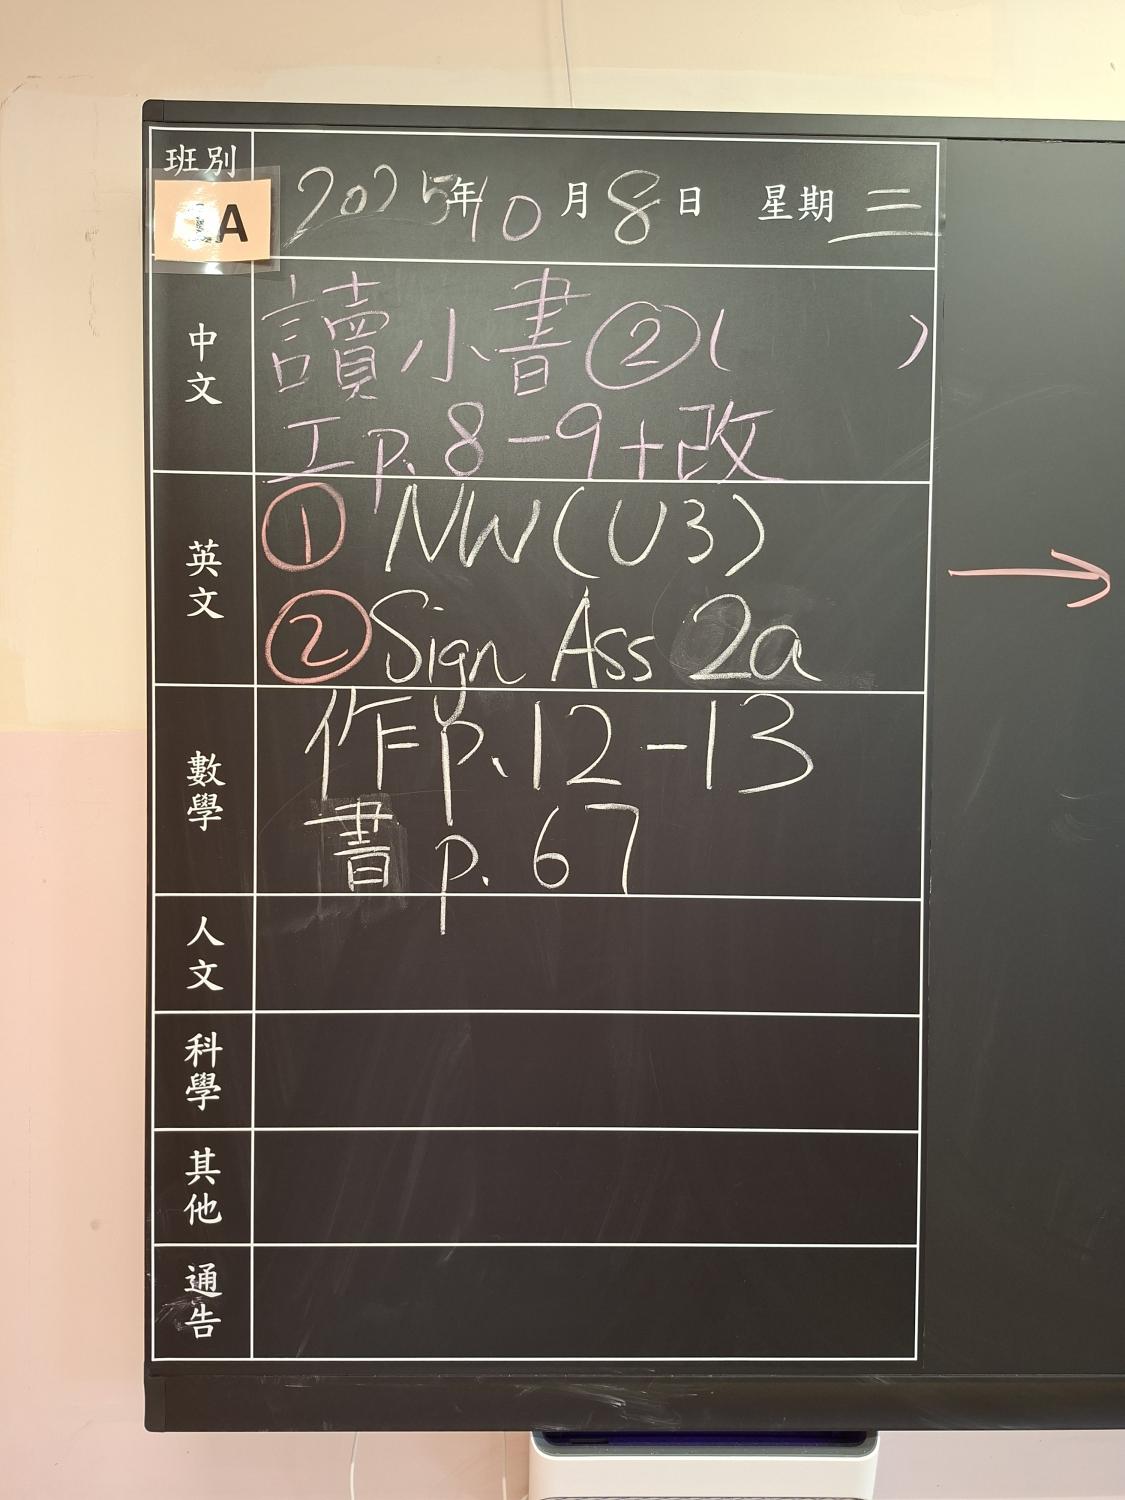 班別
A
2025年10月8日 星期三
中文
讀小書②( )
工p.8-9+改
英文
① NW(U3)
② Sign Ass 2a
數學
作p.12-13
書p.67
人文
科學
其他
通告